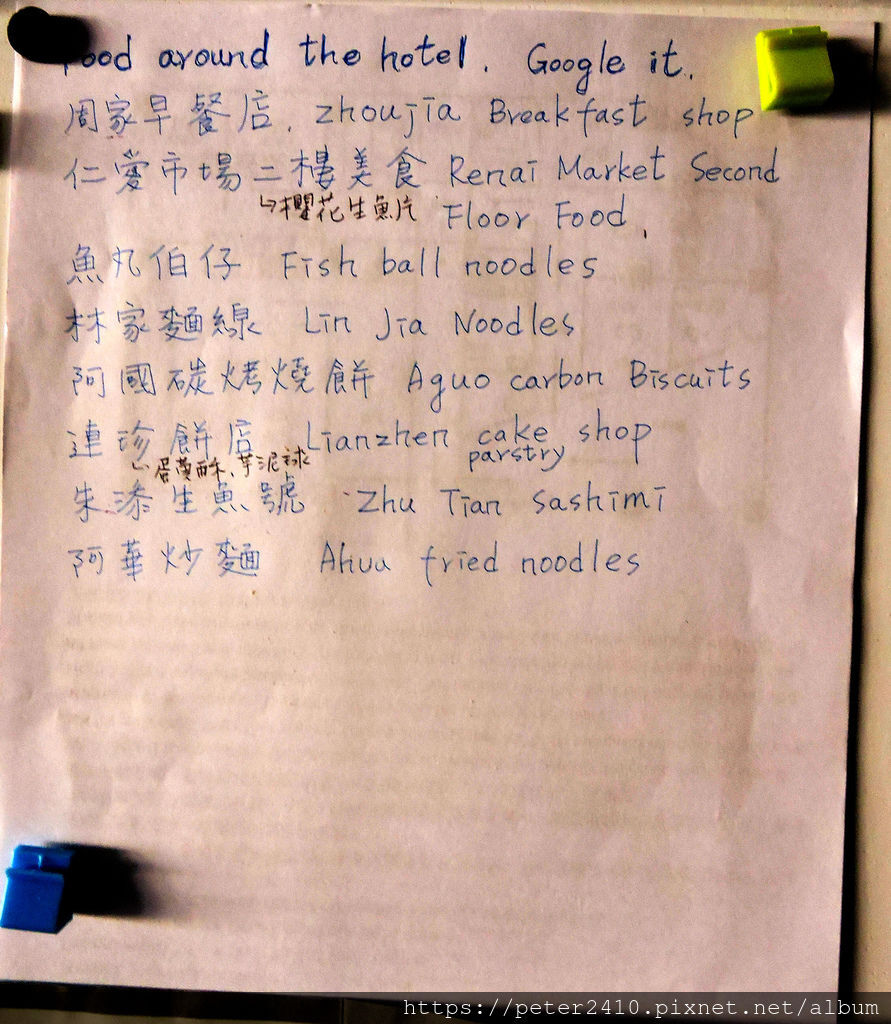 Food around the hotel. Google it.
周家早餐店. zhoujia Breakfast shop
仁愛市場二樓美食 Renai Market Second
↳櫻花生魚片 Floor Food.
魚丸伯仔 Fish ball noodles
林家麵線 Lin Jia Noodles
阿國碳烤燒餅 Aguo carbon Biscuits
連珍餅店 Lianzhen cake shop
parstry
蛋黃酥、芋泥球
朱添生魚號 Zhu Tian Sashimi
阿華炒麵 Ahua fried noodles
https://peter2410.pixnet.net/album